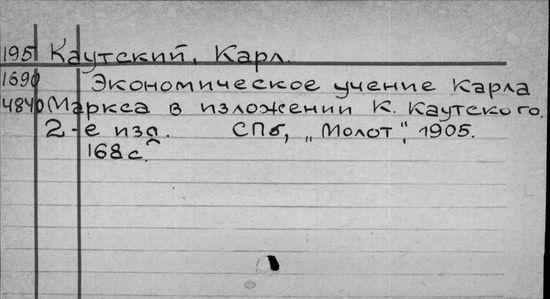 195 Каутский, Карл.
1690 Экономическое учение Карла
4840 Маркса в изложении К. Каутского.
2-е изд. СПб, „Молот", 1905.
168 с.